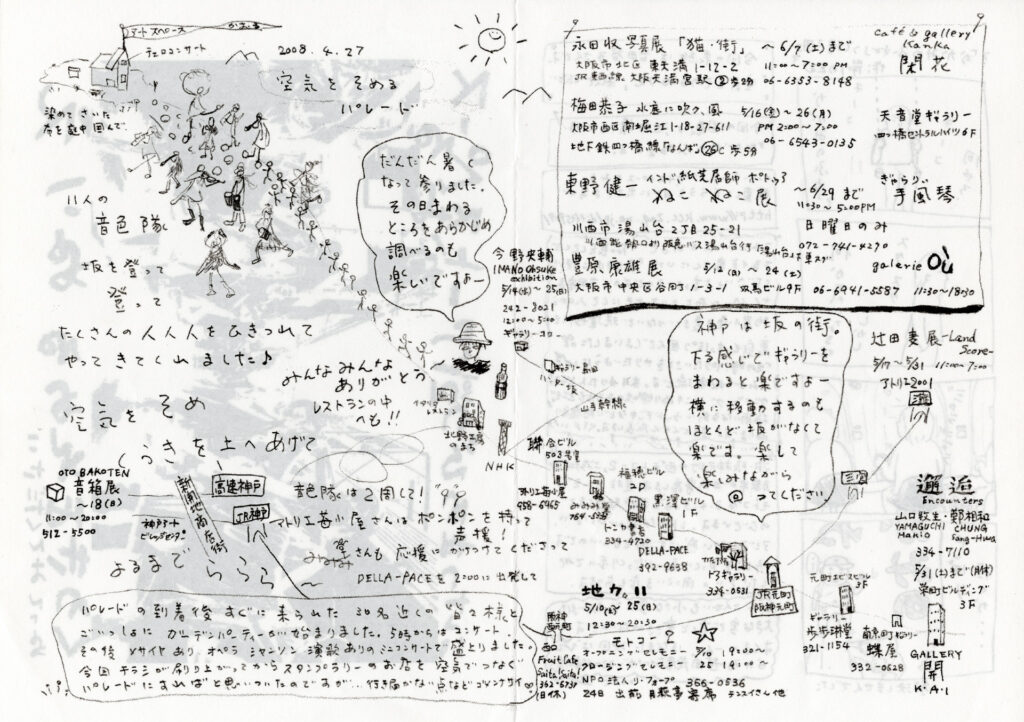 アートスペース
かおする
チェロコンサート
2008. 4. 27
空気をそめる
パレード
染めて さいた
布を庭中 囲んで
11人の
音色隊
坂を登って
登って
たくさんの人人人をひきつれて
やってきてくれました♪
空気を そめ
くうきを上へあげて
みんなみんな
ありがとう
レストランの中
へも!!
だんだん暑く
なって参りました。
その日まわる
ところをあらかじめ
調べるのも
楽しいですよー
今野央輔
IMANO Ohsuke
exhibition
5/14(水)~25(日)
242-8021
12:00~5:00
ギャラリーユウ
永田収 写真展「猫・街」 ~6/7(土)まで
大阪市北区 東天満 1-12-2
11:00~7:00 PM
JR東西線 大阪天満宮駅②歩2分 06-6353-8148
café & gallery
Kanka
閑花
梅田恭子 水意に吹く、風 5/16(金)~26(月)
大阪市西区南堀江1-18-27-611 PM 2:00~7:00
地下鉄四つ橋線「なんば」26C歩5分 06-6543-0135
天音堂ギャラリー
四つ橋セントラルハイツ6F
東野健一 インド紙芝居師 ポトゥア
ねこ ねこ 展 ~6/29まで
11:30~5:00PM
ぎゃらりぃ
手風琴
川西市 湯山台 2丁目 25-21
日曜日のみ
072-741-4290
豊原康雄展 5/12(月)~24(土)
galerie
大阪市中央区谷町1-3-1 双馬ビル9F 06-6941-5587 11:30~18:30
神戸は坂の街。
下る感じでギャラリーを
まわると楽ですよー
横に移動するのも
ほとんど坂がなくて
楽です。楽して
楽しみながら
@ってください
辻田恵展-Land
Score-
5/17~5/31 11:00~7:00
アトリエ2001
三宮
ギャラリー島田
ハンター坂
山手幹線
イタリア
レストラン
北野工房
のまち
NHK
聯合ビル
503号室
アトリエ苺小屋
958-6965
みみみ堂
福穂ビル
2F
トンカ書店
334-4720
黒澤ビル
1F
DELLA-PACE
392-9638
トアギャラリー
334-0531
JR元町
阪神元町
元町エビスビル
3F
ギャラリー
歩歩琳堂
321-1154
南京町ギャラリー
蝶屋
332-0628
GALLERY
開
K.A.I
邂逅
Encounters
山口牧生・鄭相和
YAMAGUCHI CHUNG
Makio Sang-Hwa
334-7110
5/31(土)まで(月休)
栄町ビルディング
3F
OTO BAKOTEN
音箱展
~18(日)
11:00~20:00
512-5500
神戸アート
ビレッジセンター
新開地商店街
高速神戸
JR神戸
音色隊は2周して!
アトリエ苺小屋さんはポンポンを持って
応援!
みみみ堂さんも 応援にかけつけてくださって
よるまで ららら~
DELLA-PACEを 2:00に出発して
パレードの到着後 すぐに来られた 30名近くの皆様と
ごいっしょに ガーデンパーティーが始まりました。5時からはコンサート。
その後 バサイヤあり、オペラ シャンソン 演歌ありのミニコンサートで盛上りました。
今回 チラシが刷り上ってからスタンプラリーのお店を空気でつなぐ
パレードにすればと思いついたのですが、行き届かない点などゴメンナサイ
阪神
西元町
Fruit Cafe
Saita!Saita!
362-6738
(日休)
地カリ
5/10(土)~25(日)
12:30~20:30
モトコー2
オープニングセレモニー 5/10 19:00~
クロージングセレモニー 25 19:00~
NPO法人 リ・フォープ 366-0536
24日 出前